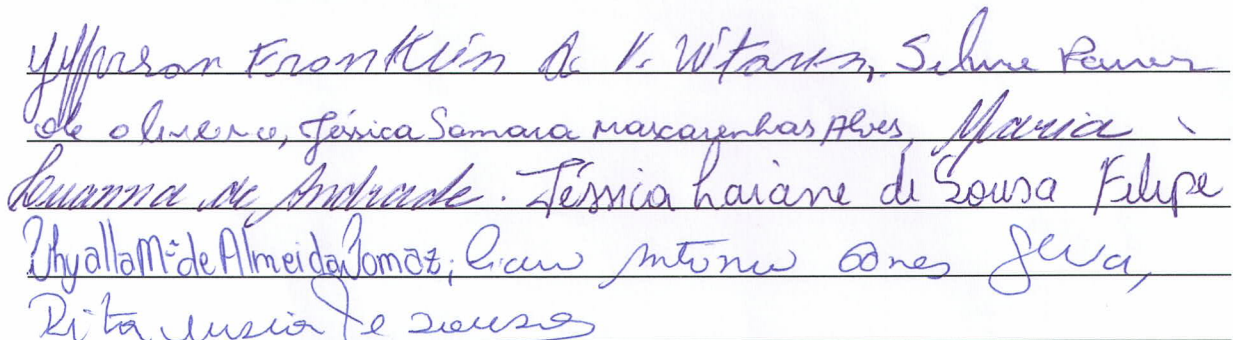 Jefferson Franklin de V. Vitarin, Selma
de oliveira, Jéssica Samara Mascarenhas Alves, Maria
Luanna de Andrade. Jéssica Laiane de Sousa Felipe
Thyalla Mª de Almeida Tomaz, Antonio Gomes Silva,
Rita Lusia de Sousa